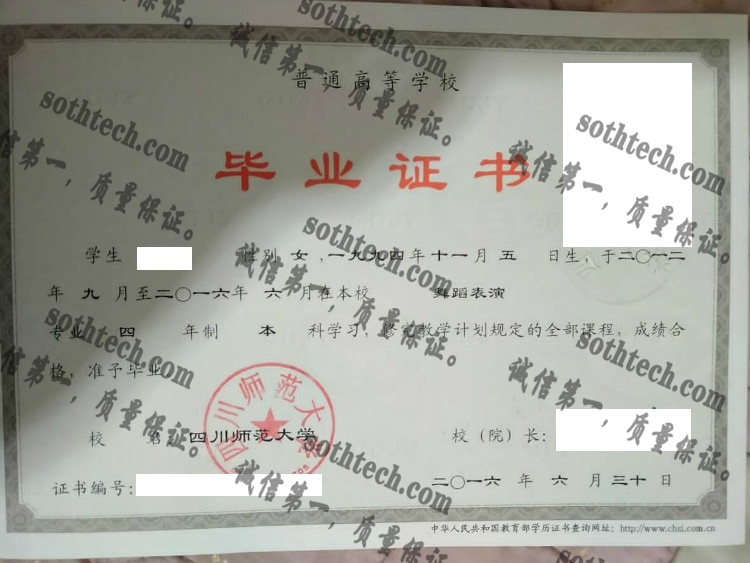 普通高等学校
毕业证书
学生 性别 女 ,一九九四年 十一 月 五 日生，于二〇一二
年 九 月至二〇一六年 六 月在本校 舞蹈表演
专业 四 年制 本 科学习，修完教学计划规定的全部课程，成绩合
格，准予毕业
校 名: 四川师范大学 校（院）长:
证书编号: 二〇一六 年 六 月 三十 日
中华人民共和国教育部学历证书查询网址: http://www.chsi.com.cn
四川师范大学
sothtech.com
诚信第一，质量保证。
sothtech.com
诚信第一，质量保证。
sothtech.com
诚信第一，质量保证。
sothtech.com
诚信第一，质量保证。
sothtech.com
诚信第一，质量保证。
sothtech.com
诚信第一，质量保证。
sothtech.com
诚信第一，质量保证。